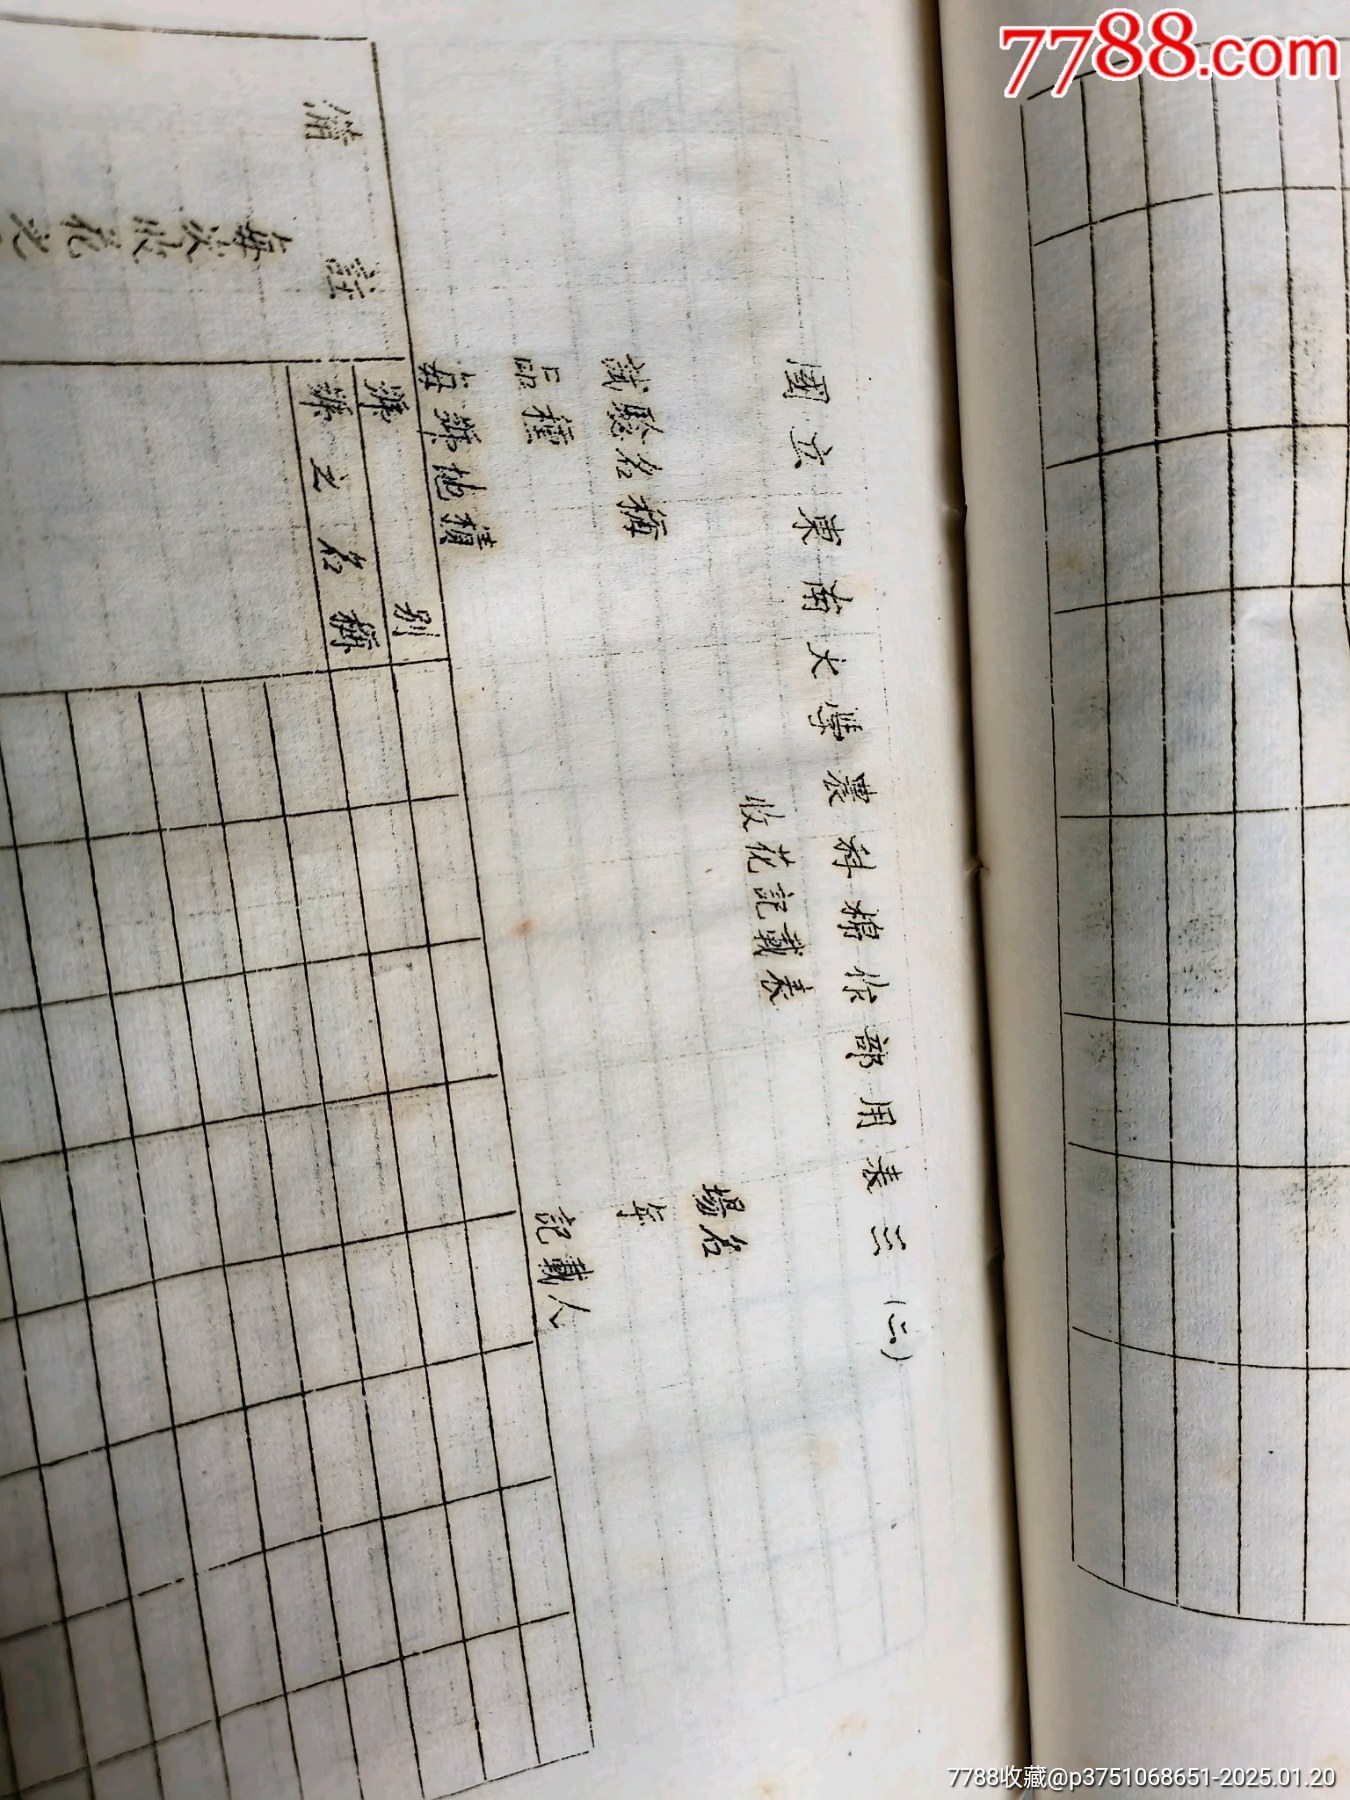 7788.com
國立東南大學農科棉作部用表三(二)
收花記載表
場名
試驗名稱
年
品種
記載人
每號地積
號別
號之名稱
備註
每次收花之
7788收藏@p3751068651-2025.01.20